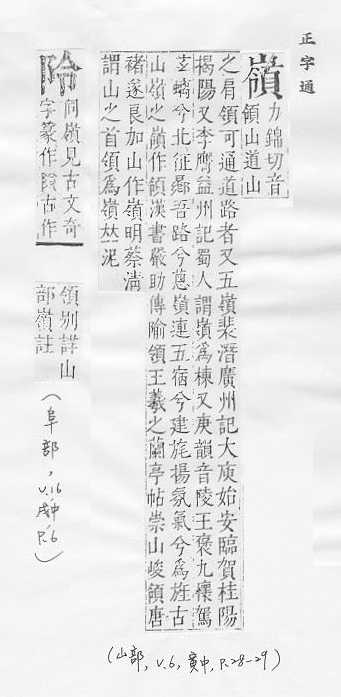 正字通
嶺
力錦切音
領山道山
之肩領可通道路者又五嶺裴潛廣州記大庾始安臨賀桂陽
揭陽又李膺益州記蜀人謂嶺為棟又庚韻音陵王褒九懷駕
玄螭兮北征曏吾路兮蔥嶺連五宿兮建旄揚氛氣兮為旌古
山嶺之嶺作領漢書嚴助傳隃領王羲之蘭亭帖崇山峻領唐
褚遂良加山作嶺明蔡清
謂山之首領為嶺𠀤泥
阾
同嶺見古文奇
字篆作古作
領別詳山
部嶺註
(阜部, v.16
戌中
P.6)
(山部, v.6, 寅中, P.28-29)